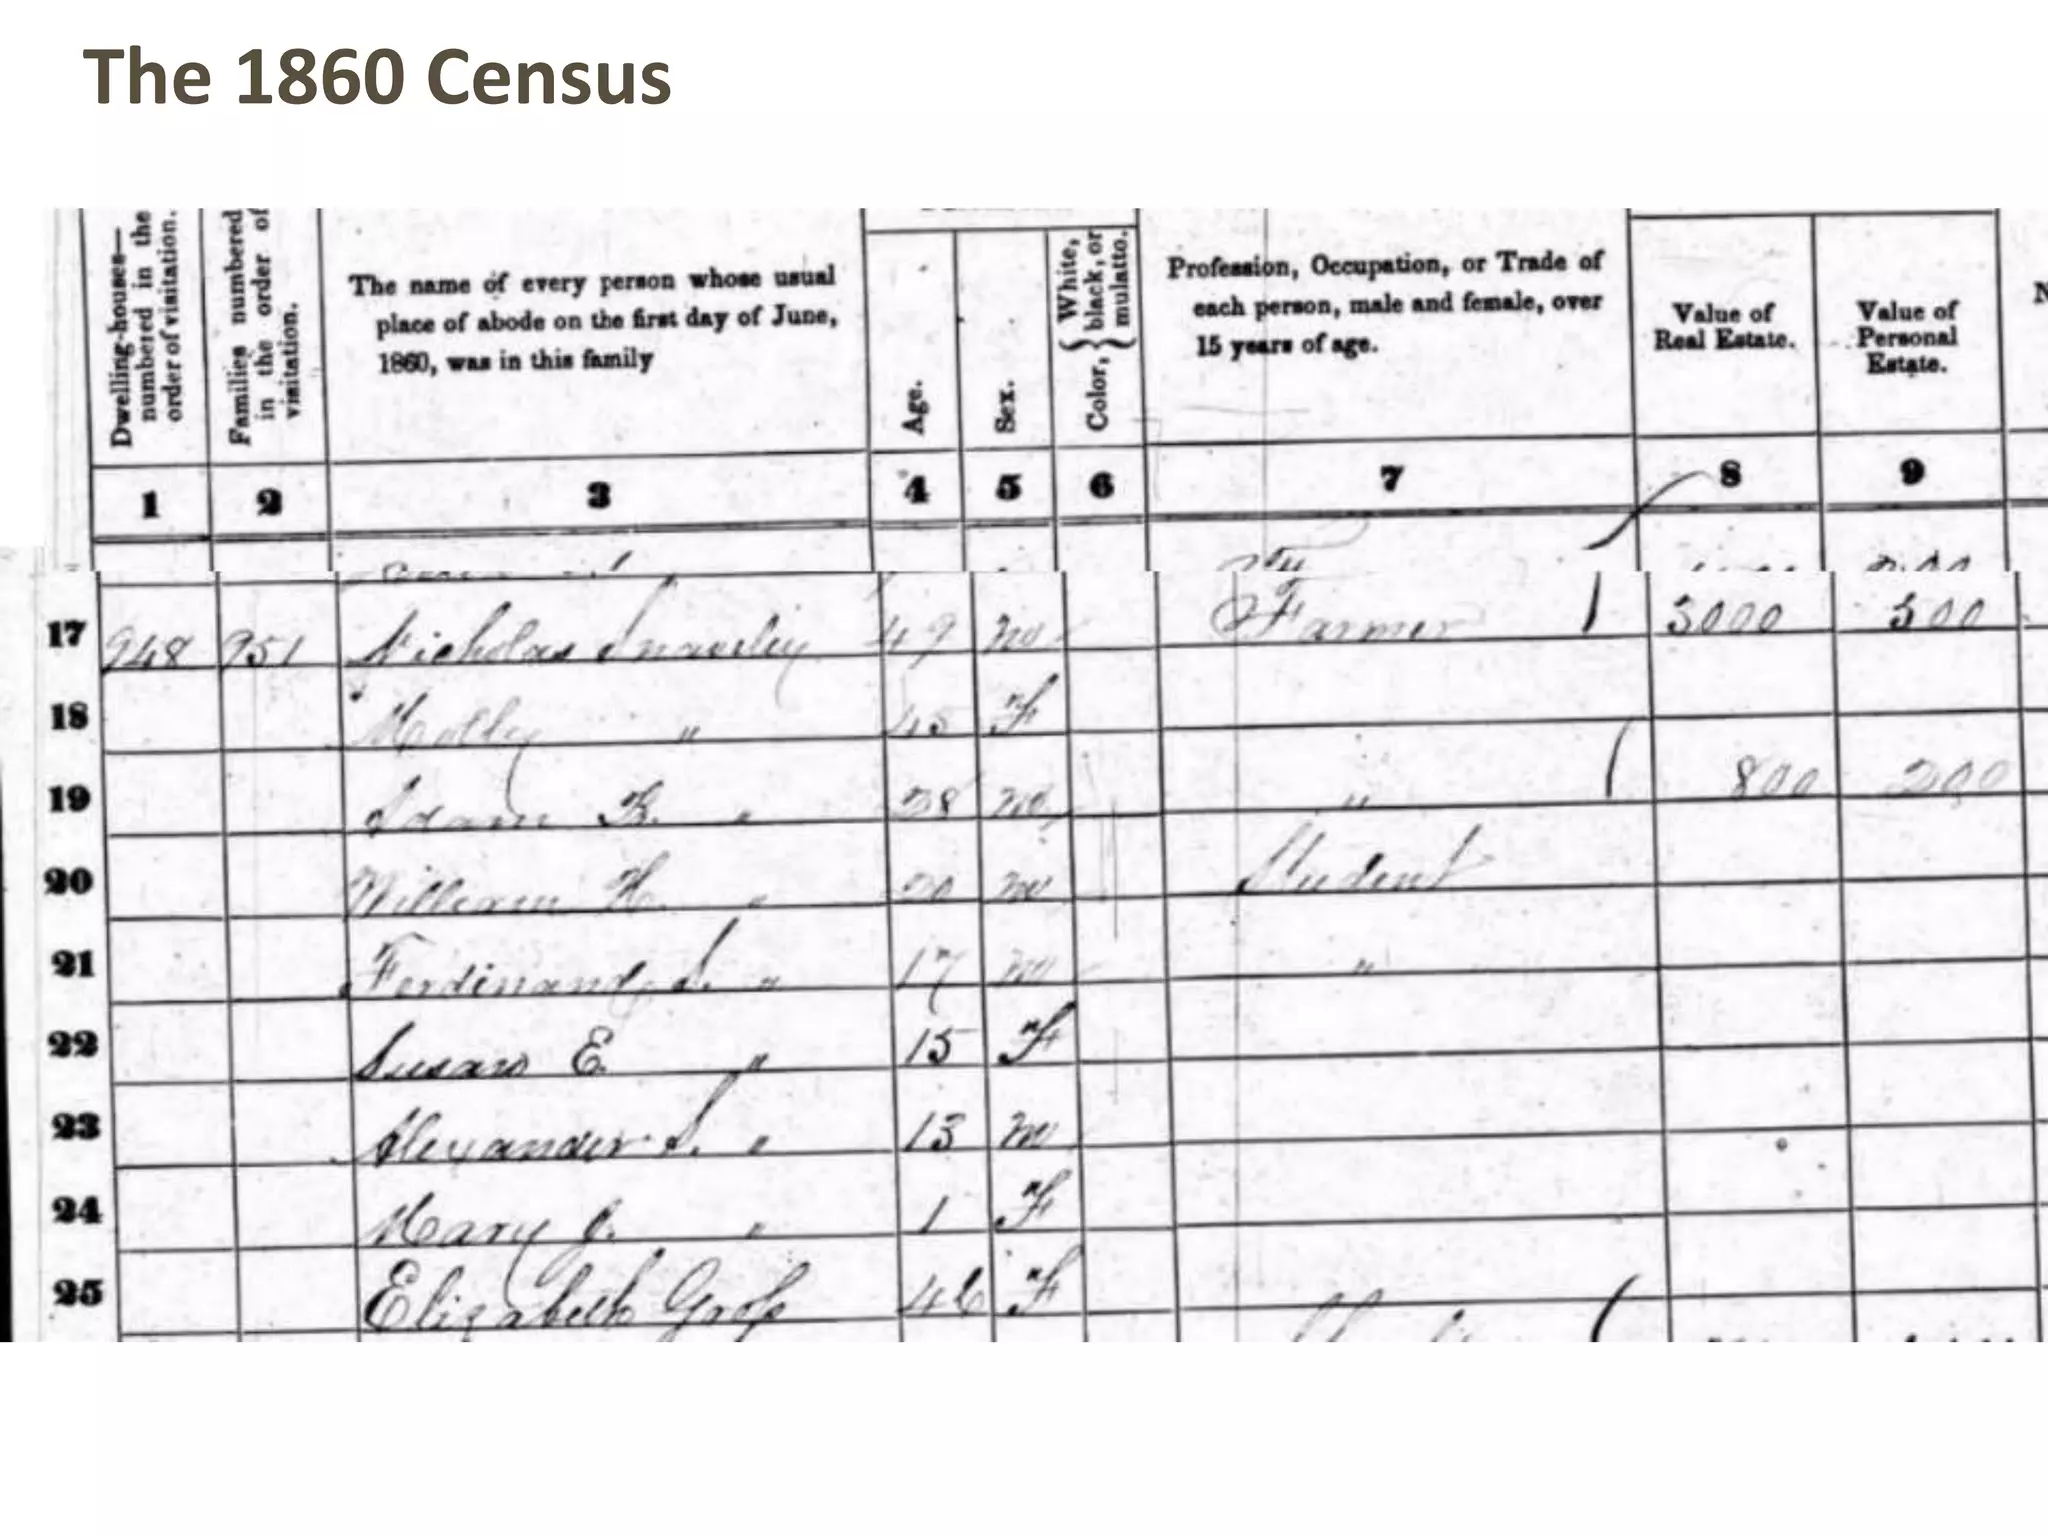 The 1860 Census
Dwelling-houses— numbered in the order of visitation.
Families numbered in the order of visitation.
The name of every person whose usual place of abode on the first day of June, 1860, was in this family
Age.
Sex.
Color, { White, black, or mulatto. }
Profession, Occupation, or Trade of each person, male and female, over 15 years of age.
Value of Real Estate.
Value of Personal Estate.
1 2 3 4 5 6 7 8 9
17 948 951 Nicholas Snaveley 49 m Farmer 1 3000 500
18 Molley " 45 F
19 Adam B. " 28 m " 1 800 200
20 William H. " 20 m Student
21 Ferdinand S. " 17 m "
22 Susan E. " 15 F
23 Alexander S. " 13 m
24 Mary J. " 1 F
25 Elizabeth Gross 46 F